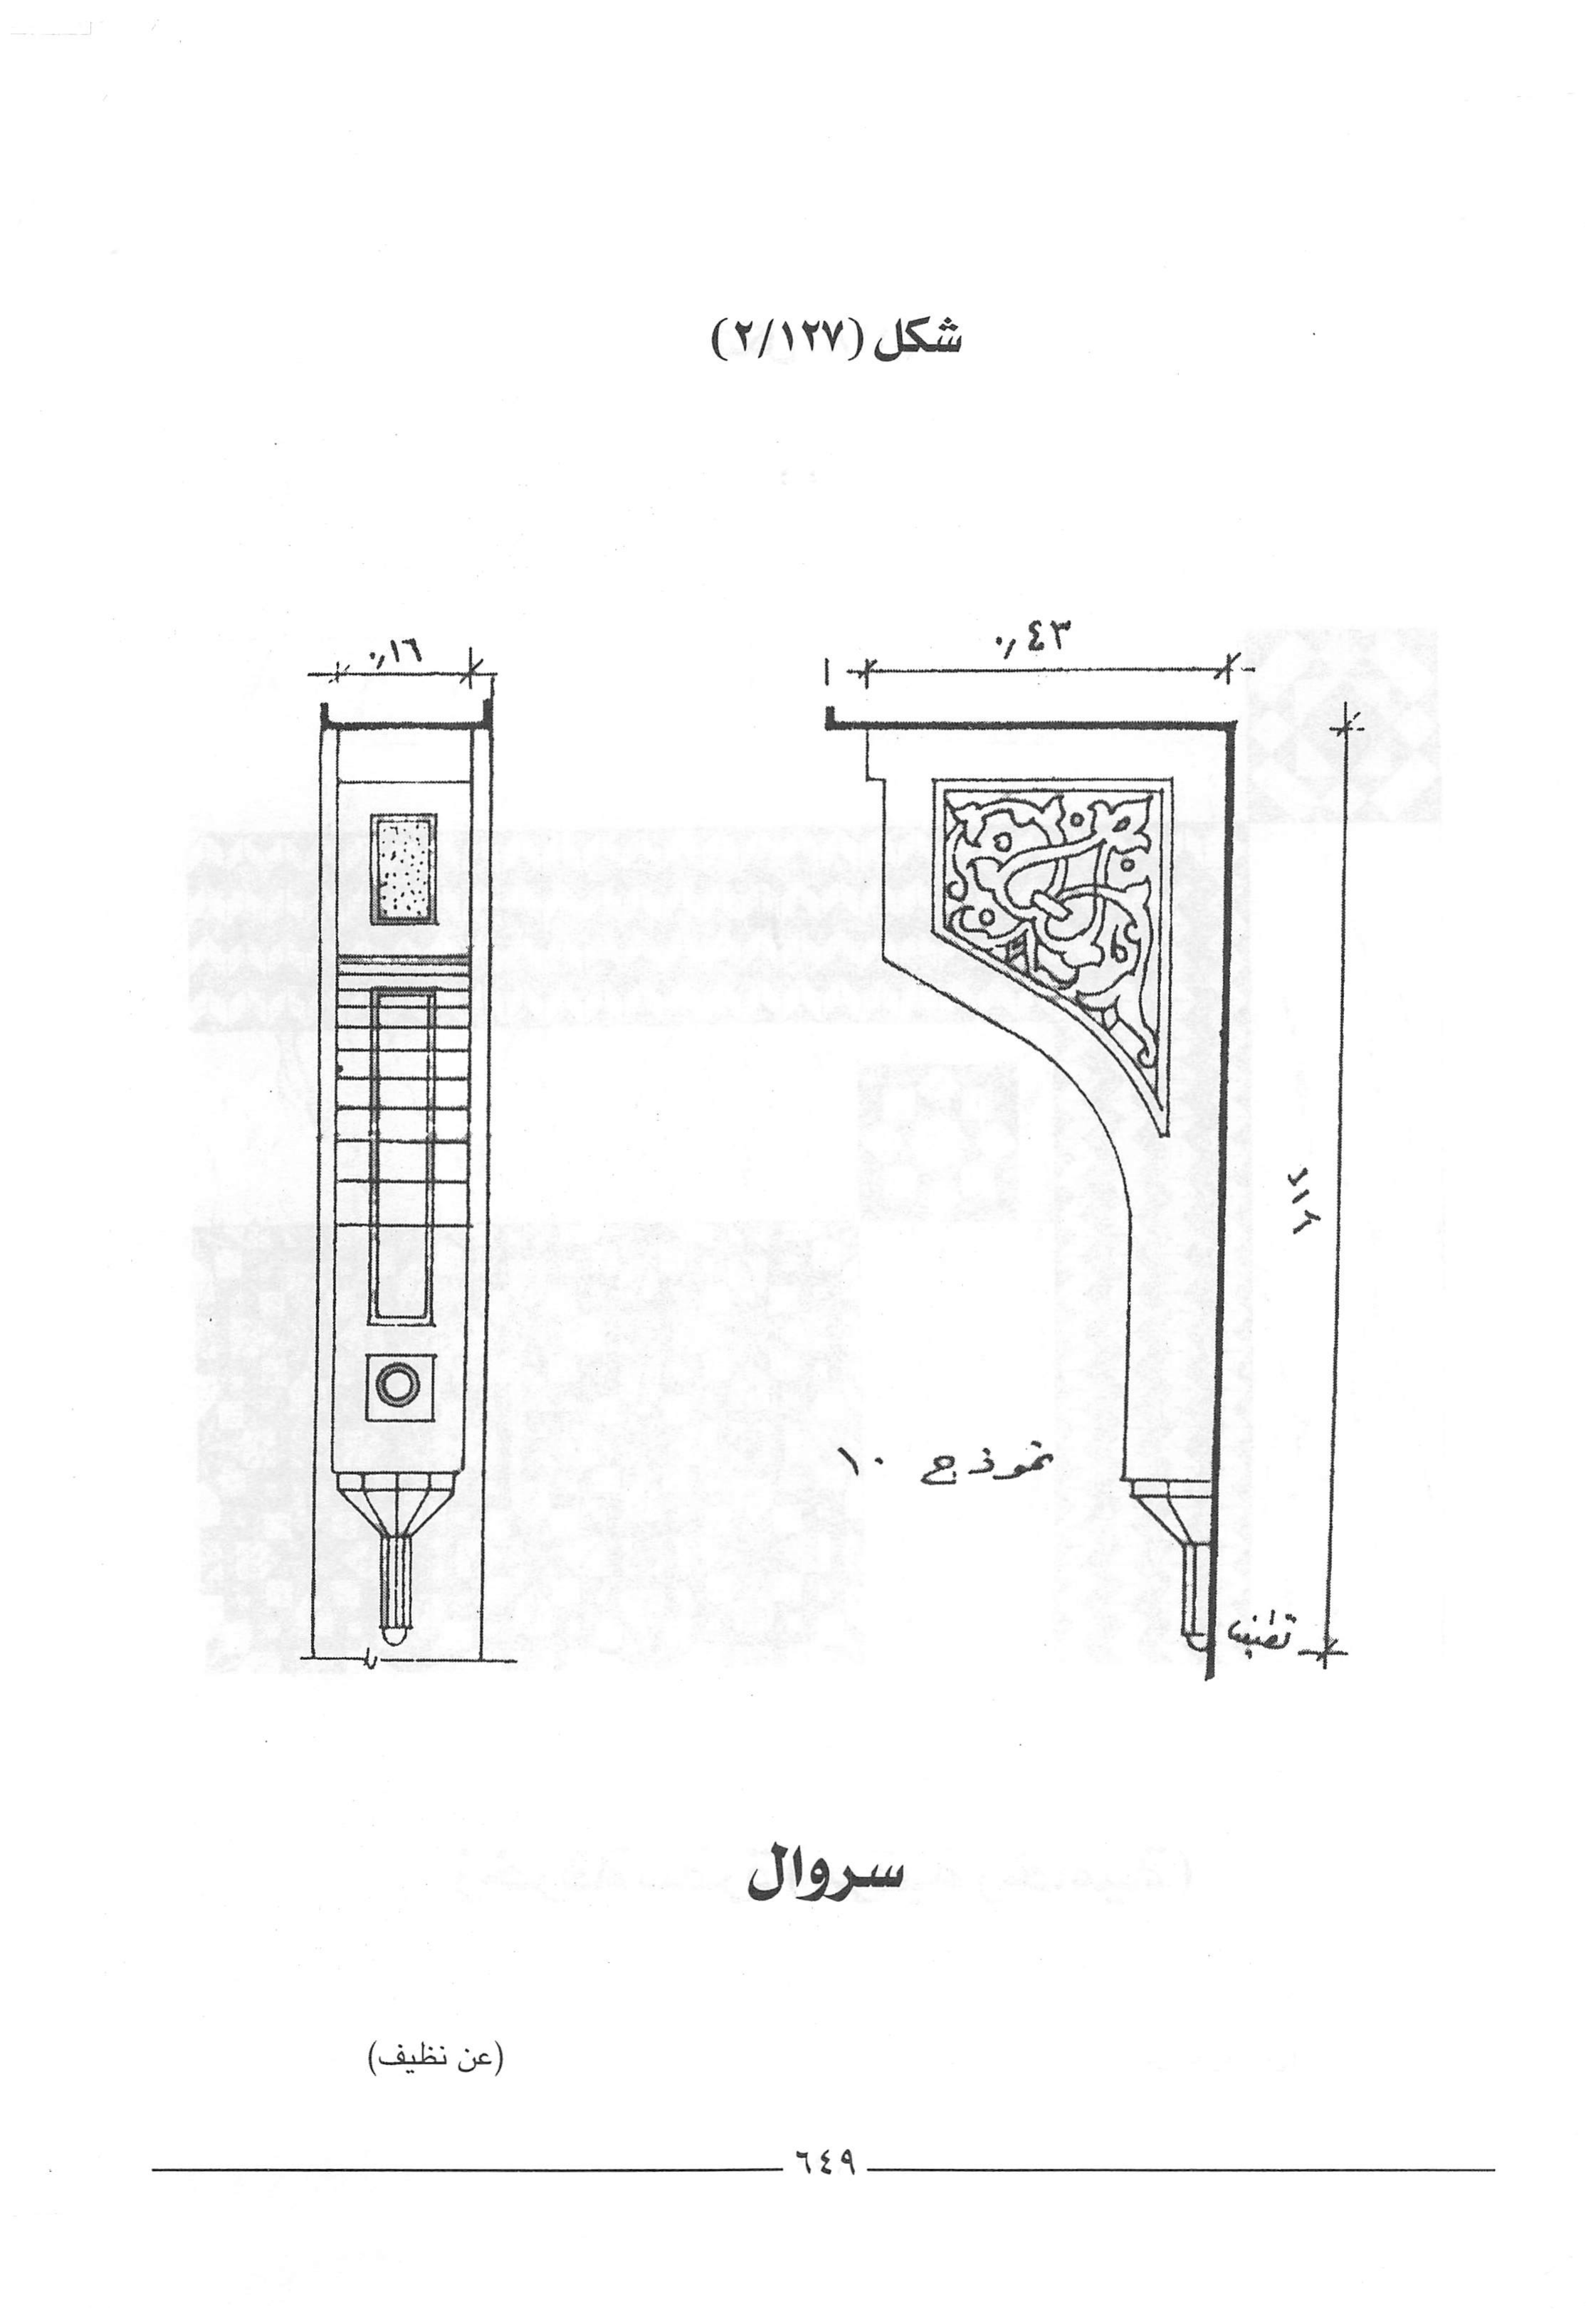 شكل (٢/١٢٧)
٠٫٤٣
٠٫١٦
نموذج ١٠
سروال
(عن نظيف)
٦٤٩